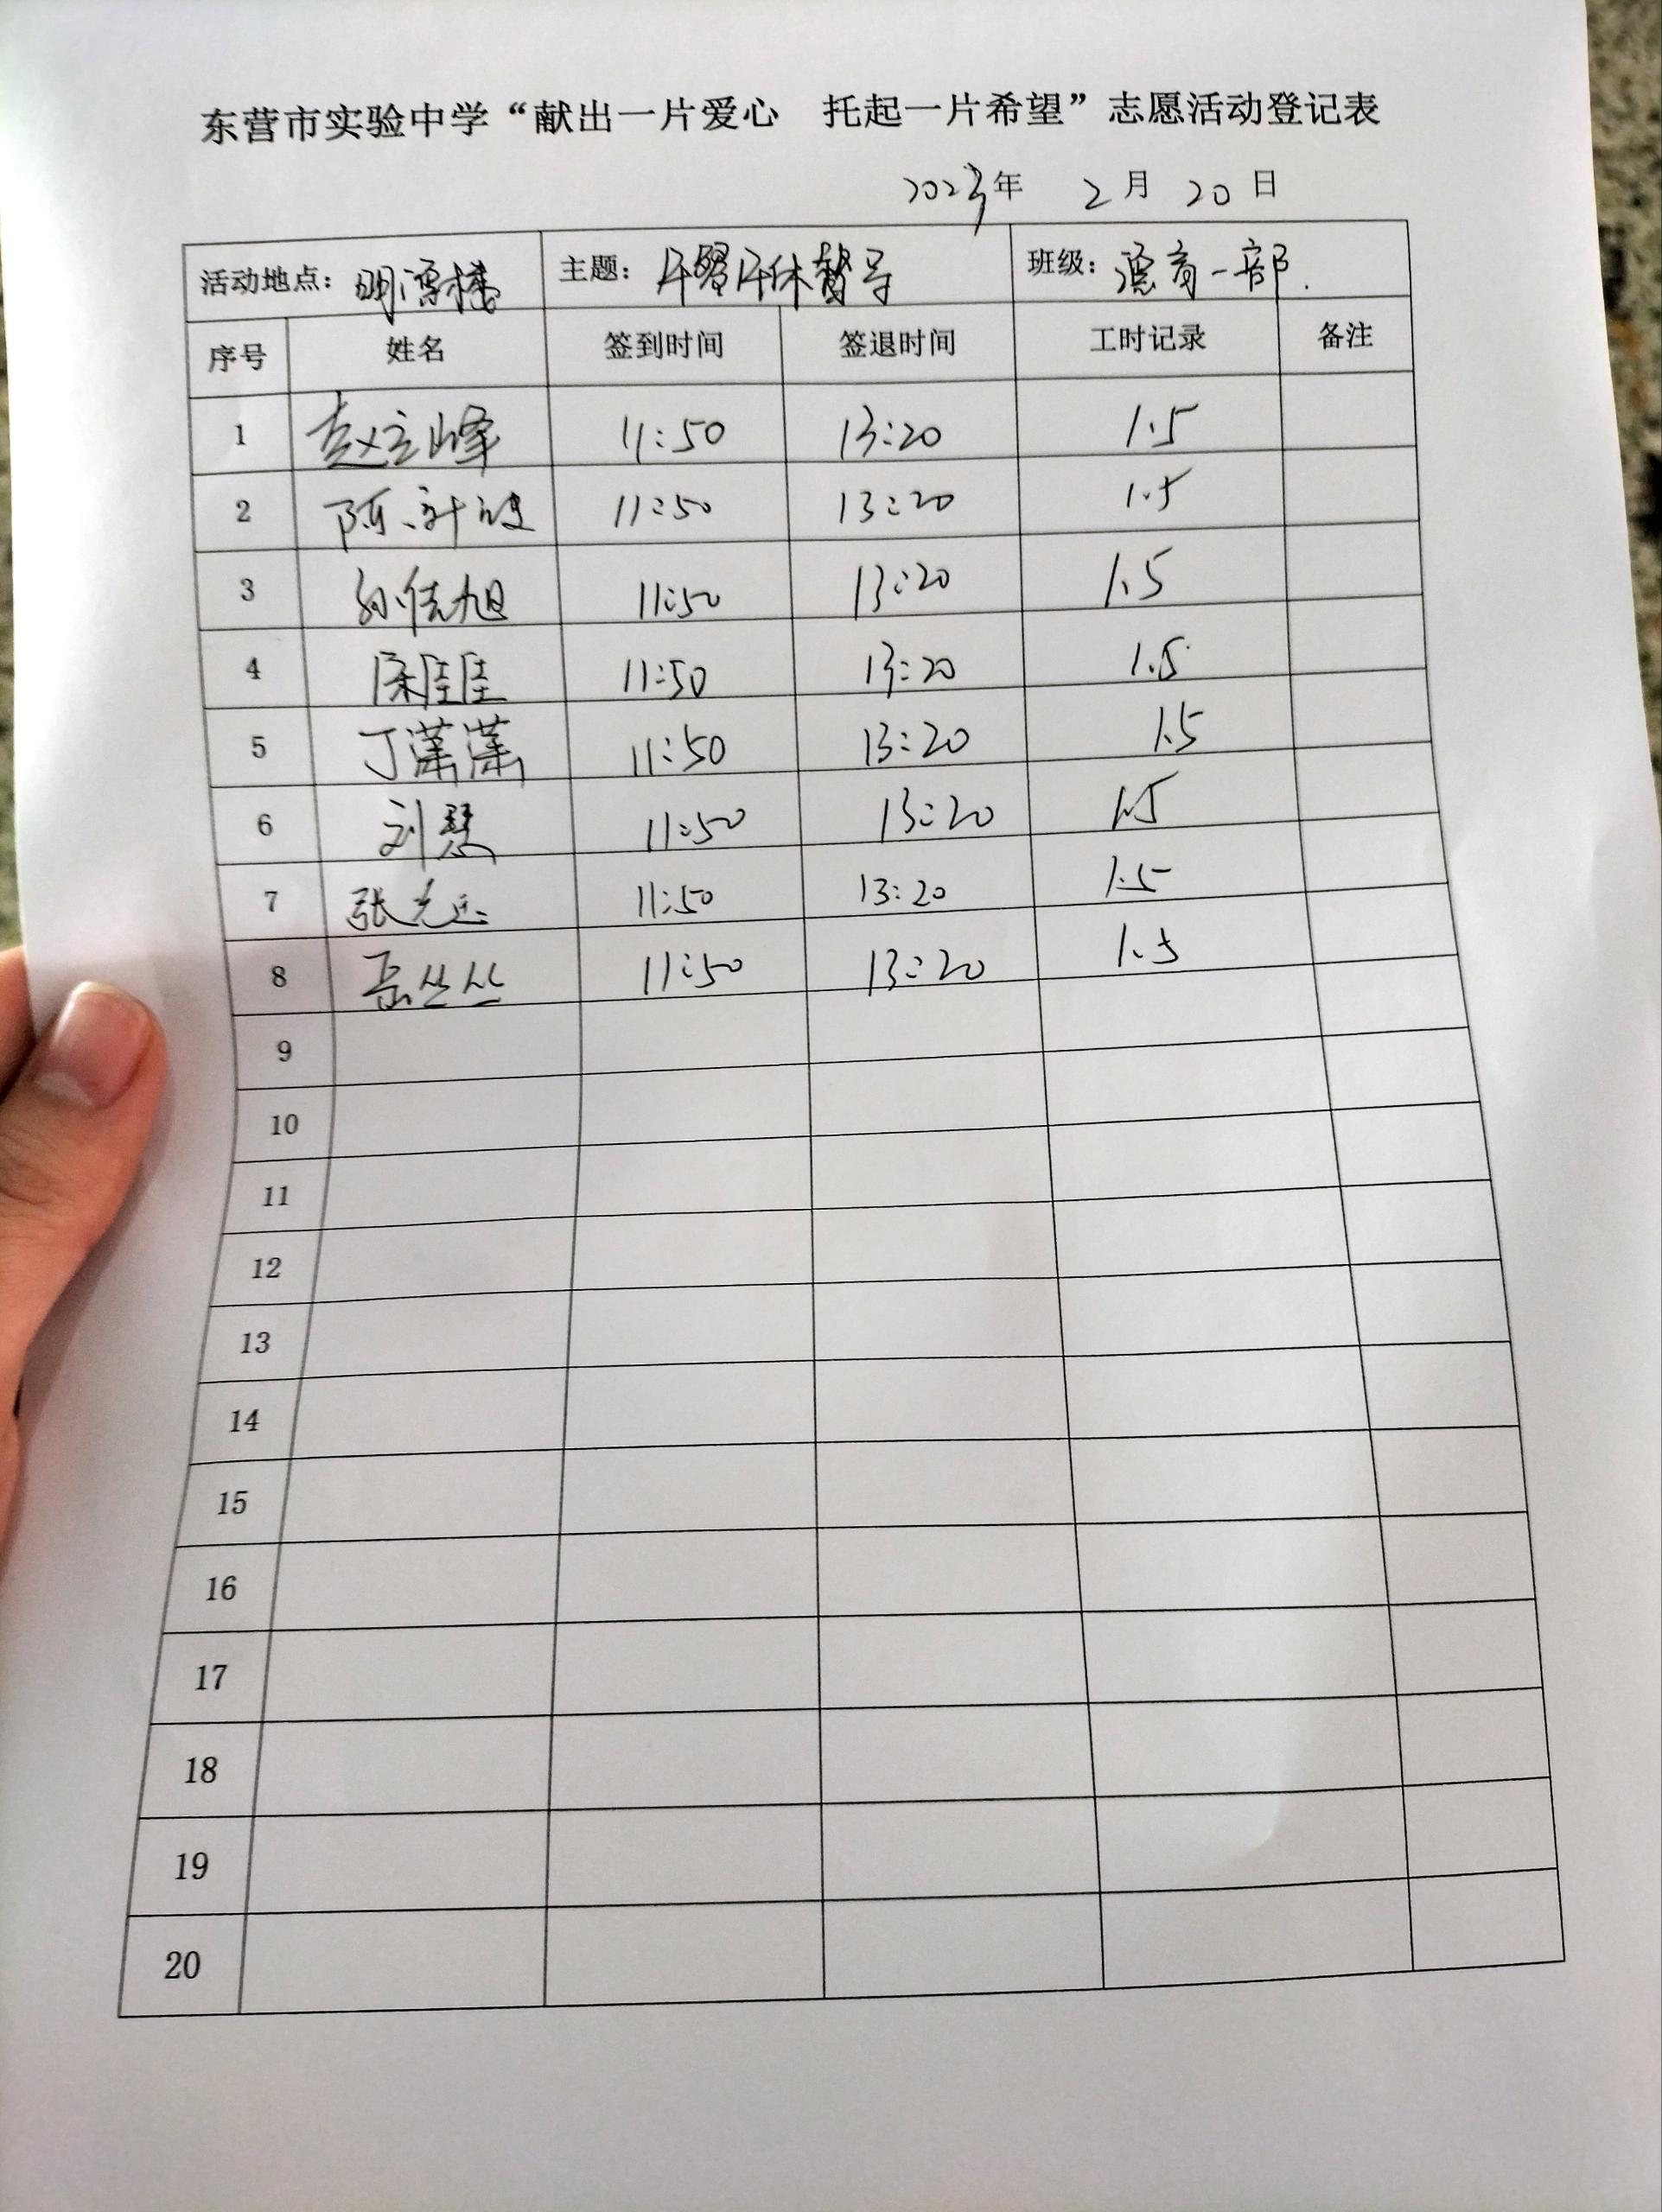 东营市实验中学“献出一片爱心 托起一片希望”志愿活动登记表
2023年 2月 20日
活动地点：明德楼 主题：午餐午休督导 班级：德育一部.
序号 姓名 签到时间 签退时间 工时记录 备注
1 赵立峰 11:50 13:20 1.5
2 陈 11:50 13:20 1.5
3 孙佳旭 11:50 13:20 1.5
4 11:50 13:20 1.5
5 丁潇潇 11:50 13:20 1.5
6 刘慧 11:50 13:20 1.5
7 张 11:50 13:20 1.5
8 岳丛丛 11:50 13:20 1.5
9
10
11
12
13
14
15
16
17
18
19
20